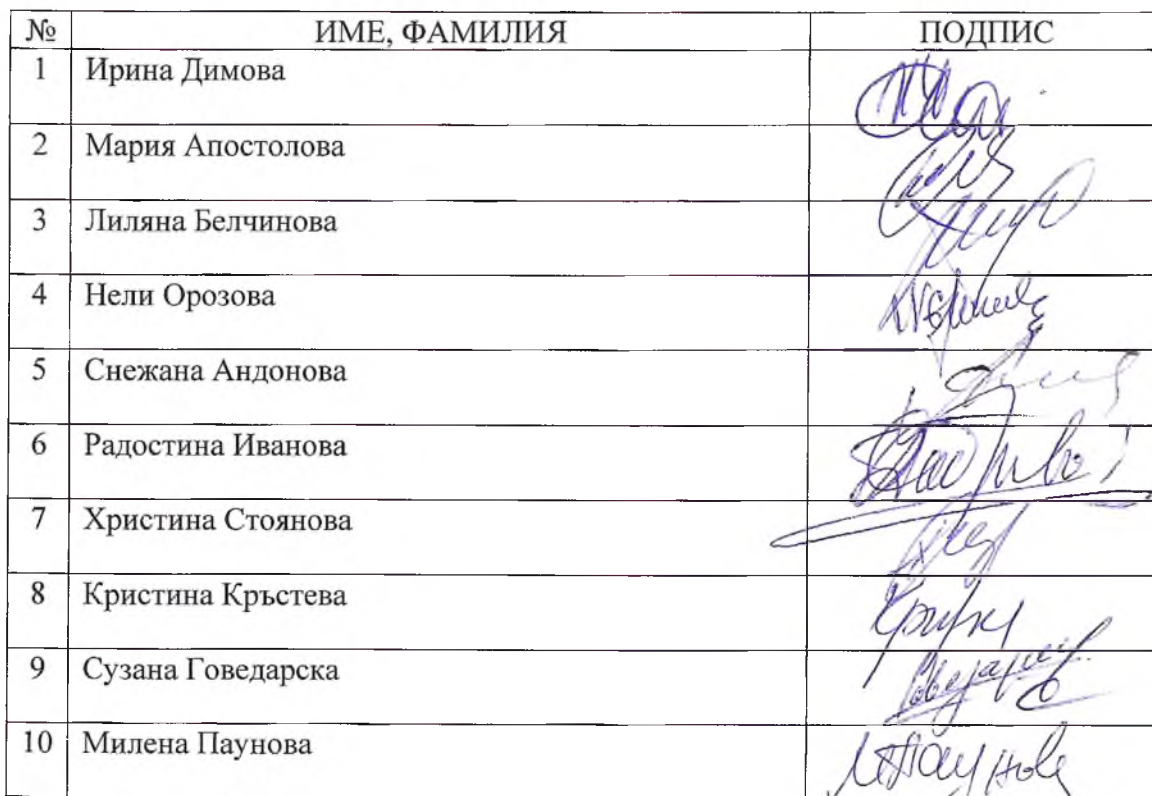 № ИМЕ, ФАМИЛИЯ ПОДПИС
1 Ирина Димова
2 Мария Апостолова
3 Лиляна Белчинова
4 Нели Орозова
5 Снежана Андонова
6 Радостина Иванова
7 Христина Стоянова
8 Кристина Кръстева
9 Сузана Говедарска
10 Милена Паунова